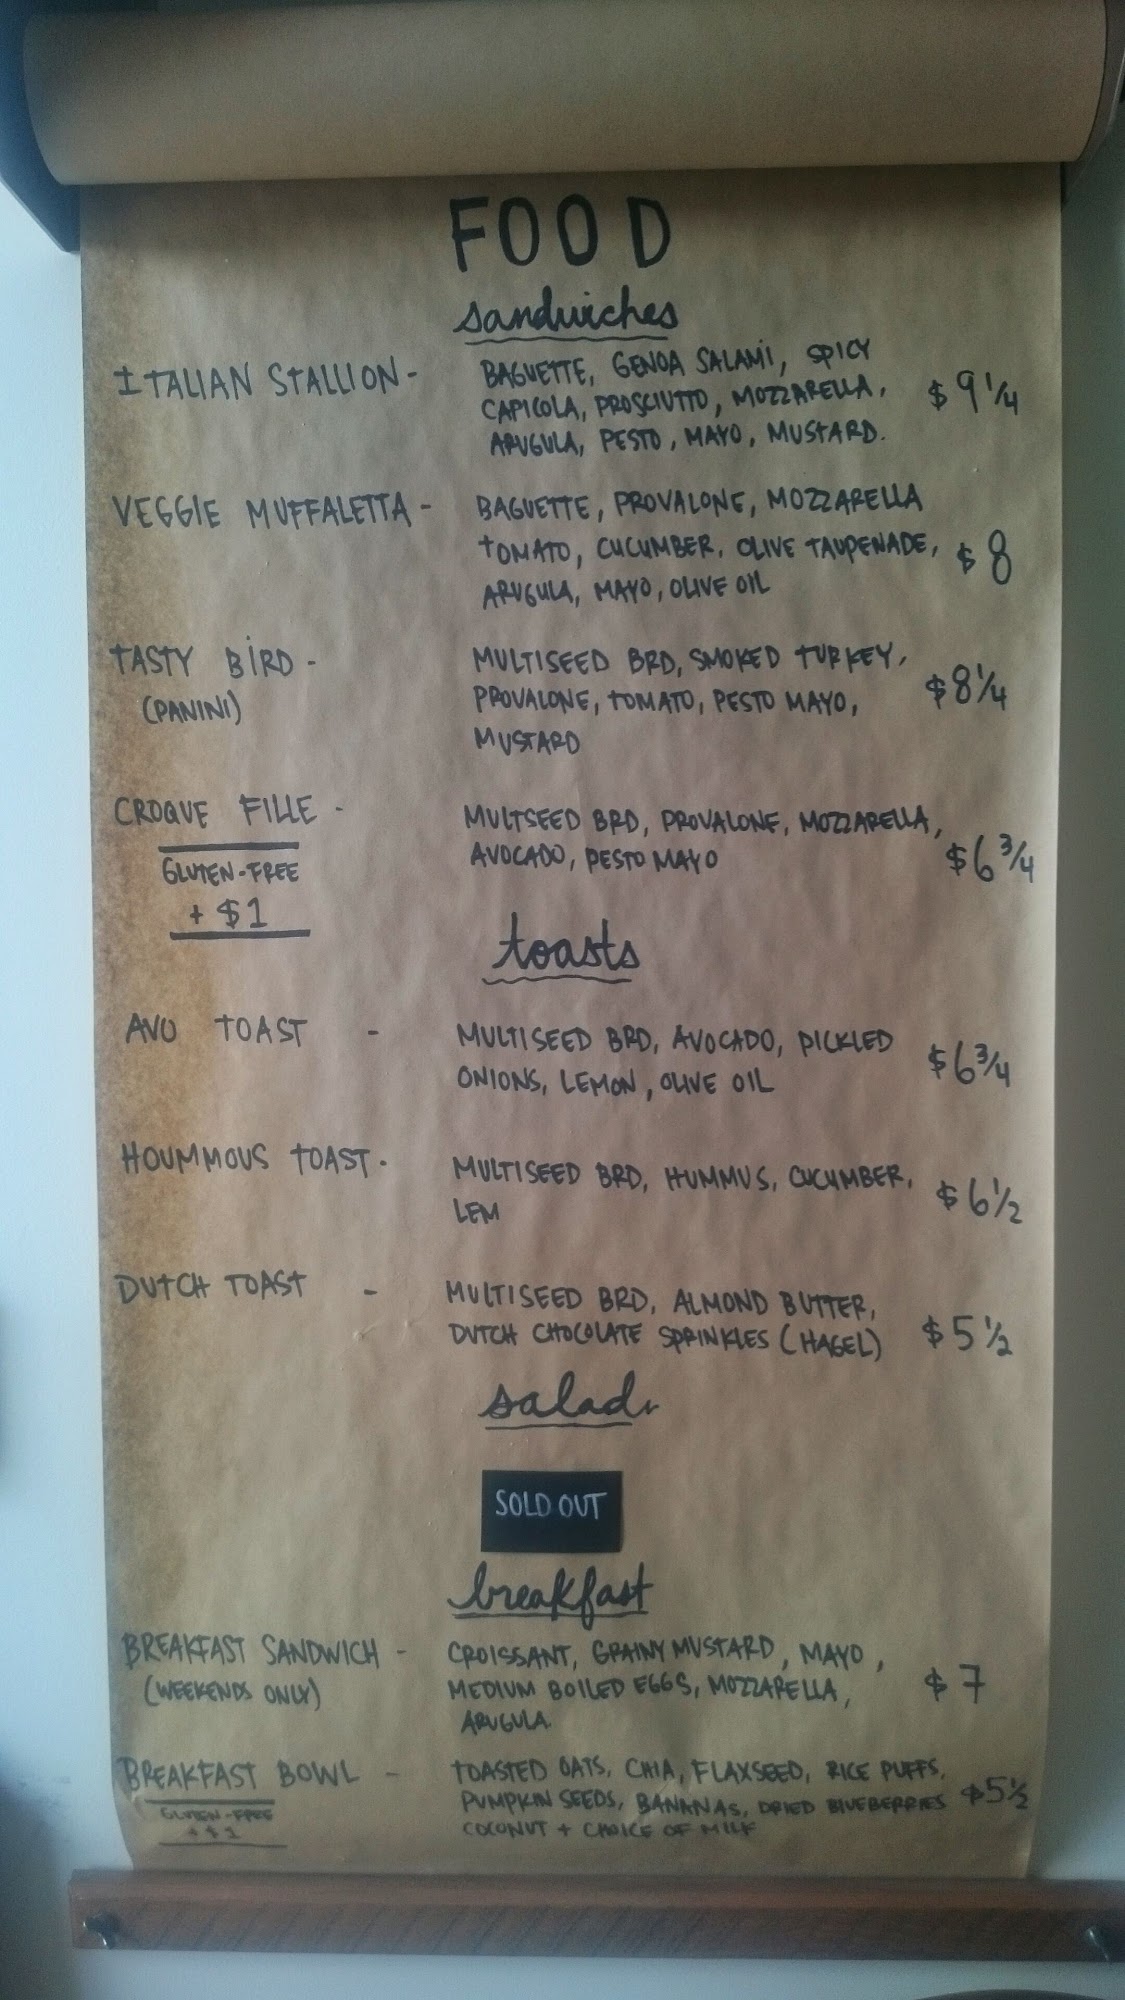 FOOD
sandwiches
ITALIAN STALLION - BAGUETTE, GENOA SALAMI, SPICY
CAPICOLA, PROSCIUTTO, MOZZARELLA, $9 1/4
ARUGULA, PESTO, MAYO, MUSTARD.
VEGGIE MUFFALETTA - BAGUETTE, PROVALONE, MOZZARELLA
TOMATO, CUCUMBER, OLIVE TAUPENADE, $8
ARUGULA, MAYO, OLIVE OIL
TASTY BIRD - MULTISEED BRD, SMOKED TURKEY,
(PANINI) PROVALONE, TOMATO, PESTO MAYO, $8 1/4
MUSTARD
CROQUE FILLE - MULTSEED BRD, PROVALONE, MOZZARELLA,
GLUTEN-FREE AVOCADO, PESTO MAYO $6 3/4
+ $1
toasts
AVO TOAST - MULTISEED BRD, AVOCADO, PICKLED
ONIONS, LEMON, OLIVE OIL $6 3/4
HOUMMOUS TOAST - MULTISEED BRD, HUMMUS, CUCUMBER,
LEM $6 1/2
DUTCH TOAST - MULTISEED BRD, ALMOND BUTTER,
DUTCH CHOCOLATE SPRINKLES (HAGEL) $5 1/2
salads
SOLD OUT
breakfast
BREAKFAST SANDWICH - CROISSANT, GRAINY MUSTARD, MAYO,
(WEEKENDS ONLY) MEDIUM BOILED EGGS, MOZZARELLA, $7
ARUGULA.
BREAKFAST BOWL - TOASTED OATS, CHIA, FLAXSEED, RICE PUFFS,
GLUTEN-FREE PUMPKIN SEEDS, BANANAS, DRIED BLUEBERRIES $5 1/2
+ $1 COCONUT + CHOICE OF MILK